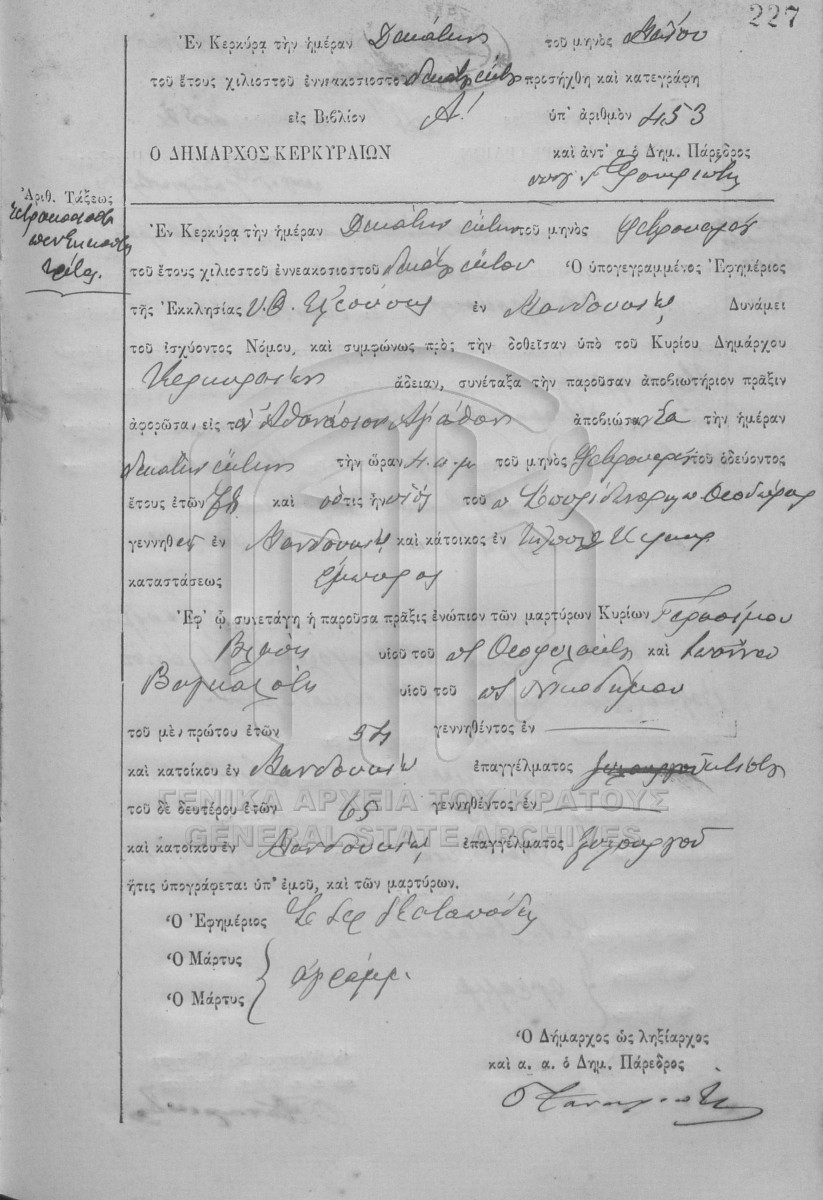 227
Ἐν Κερκύρᾳ τὴν ἡμέραν Δεκάτην τοῦ μηνὸς Μαΐου
τοῦ ἔτους χιλιοστοῦ ἐννεακοσιοστοῦ δεκάτου ἕκτου προσήχθη καὶ κατεγράφη
εἰς Βιβλίον Α! ὑπ' ἀριθμὸν 453
Ο ΔΗΜΑΡΧΟΣ ΚΕΡΚΥΡΑΙΩΝ καὶ ἀντ' α ὁ Δημ. Πάρεδρος
Ἀριθ. Τάξεως
Τετρακόσια
πεντήκοντα
τρία.
Ἐν Κερκύρᾳ τὴν ἡμέραν Δεκάτην ἕκτην τοῦ μηνὸς Φεβρουαρίου
τοῦ ἔτους χιλιοστοῦ ἐννεακοσιοστοῦ δεκάτου ἕκτου Ὁ ὑπογεγραμμένος Ἐφημέριος
τῆς Ἐκκλησίας Υ. Θ. Ἐλεούσης ἐν Μανδουκίῳ Δυνάμει
τοῦ ἰσχύοντος Νόμου, καὶ συμφώνως πρὸς τὴν δοθεῖσαν ὑπὸ τοῦ Κυρίου Δημάρχου
Κερκυραίων ἄδειαν, συνέταξα τὴν παροῦσαν ἀποβιωτήριον πρᾶξιν
ἀφορῶσα, εἰς τὸν Ἀθανάσιον ἀποβιώσαντα τὴν ἡμέραν
δεκάτην ἕκτην τὴν ὥραν 4 π.μ. τοῦ μηνὸς Φεβρουαρίου τοῦ ὁδεύοντος
ἔτους ἐτῶν καὶ ὅστις ἦν υἱὸς τοῦ π. Σπυρίδωνος Θεοδώρας
γεννηθεὶς ἐν Μανδουκίῳ καὶ κάτοικος ἐν
καταστάσεως ἔμπορος
Ἐφ' ᾧ συνετάγη ἡ παροῦσα πρᾶξις ἐνώπιον τῶν μαρτύρων Κυρίων Γερασίμου
Βλάση υἱοῦ τοῦ π. Θεοφυλάκτου καὶ Ἰωάννου
υἱοῦ τοῦ π. Νικοδήμου
τοῦ μὲν πρώτου ἐτῶν 54 γεννηθέντος ἐν
καὶ κατοίκου ἐν Μανδουκίῳ ἐπαγγέλματος ξυλουργοῦ κτίστου
τοῦ δὲ δευτέρου ἐτῶν 65 γεννηθέντος ἐν
ΓΕΝΙΚΑ ΑΡΧΕΙΑ ΤΟΥ ΚΡΑΤΟΥΣ
GENERAL STATE ARCHIVES
καὶ κατοίκου ἐν Μανδουκίῳ ἐπαγγέλματος ξυλουργοῦ
ἥτις ὑπογράφεται ὑπ' ἐμοῦ, καὶ τῶν μαρτύρων.
Ὁ Ἐφημέριος
Ὁ Μάρτυς
ἀγράμμ.
Ὁ Μάρτυς
Ὁ Δήμαρχος ὡς ληξίαρχος
καὶ α. α. ὁ Δημ. Πάρεδρος